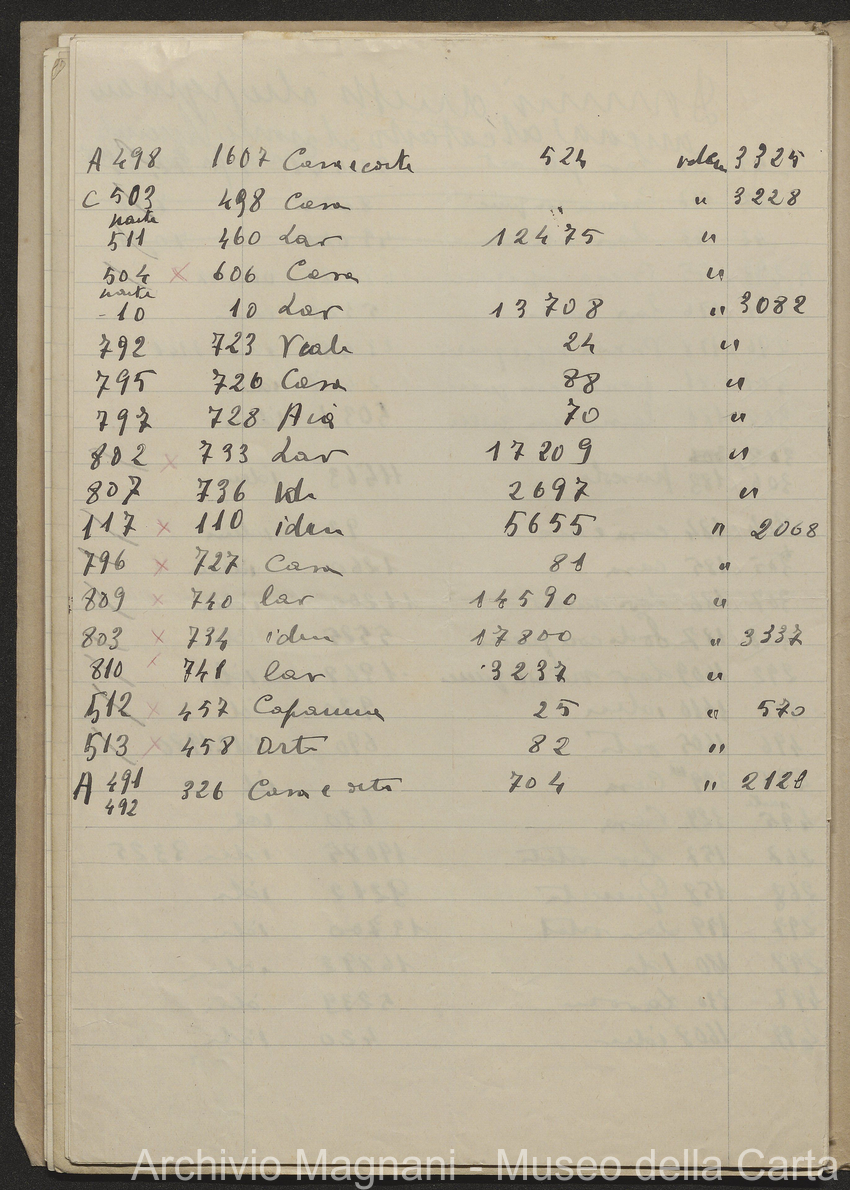 A 498 1607 Casa e corte 524 idem 3325
C 503 498 Casa " 3228
parte
511 460 Lav 12475 "
504 × 606 Casa "
parte
-10 10 Lav 13708 " 3082
792 723 Viale 24 "
795 726 Casa 88 "
797 728 Aia 70 "
802 × 733 Lav 17209 "
807 736 Id 2697 "
117 × 110 idem 5655 " 2068
796 × 727 Casa 81 "
809 × 740 lav 14590 "
803 × 734 idem 17800 " 3337
810 × 741 lav 3237 "
512 × 457 Capanna 25 " 570
513 × 458 Orto 82 "
A 491 326 Casa e orto 704 " 2121
492
Archivio Magnani - Museo della Carta